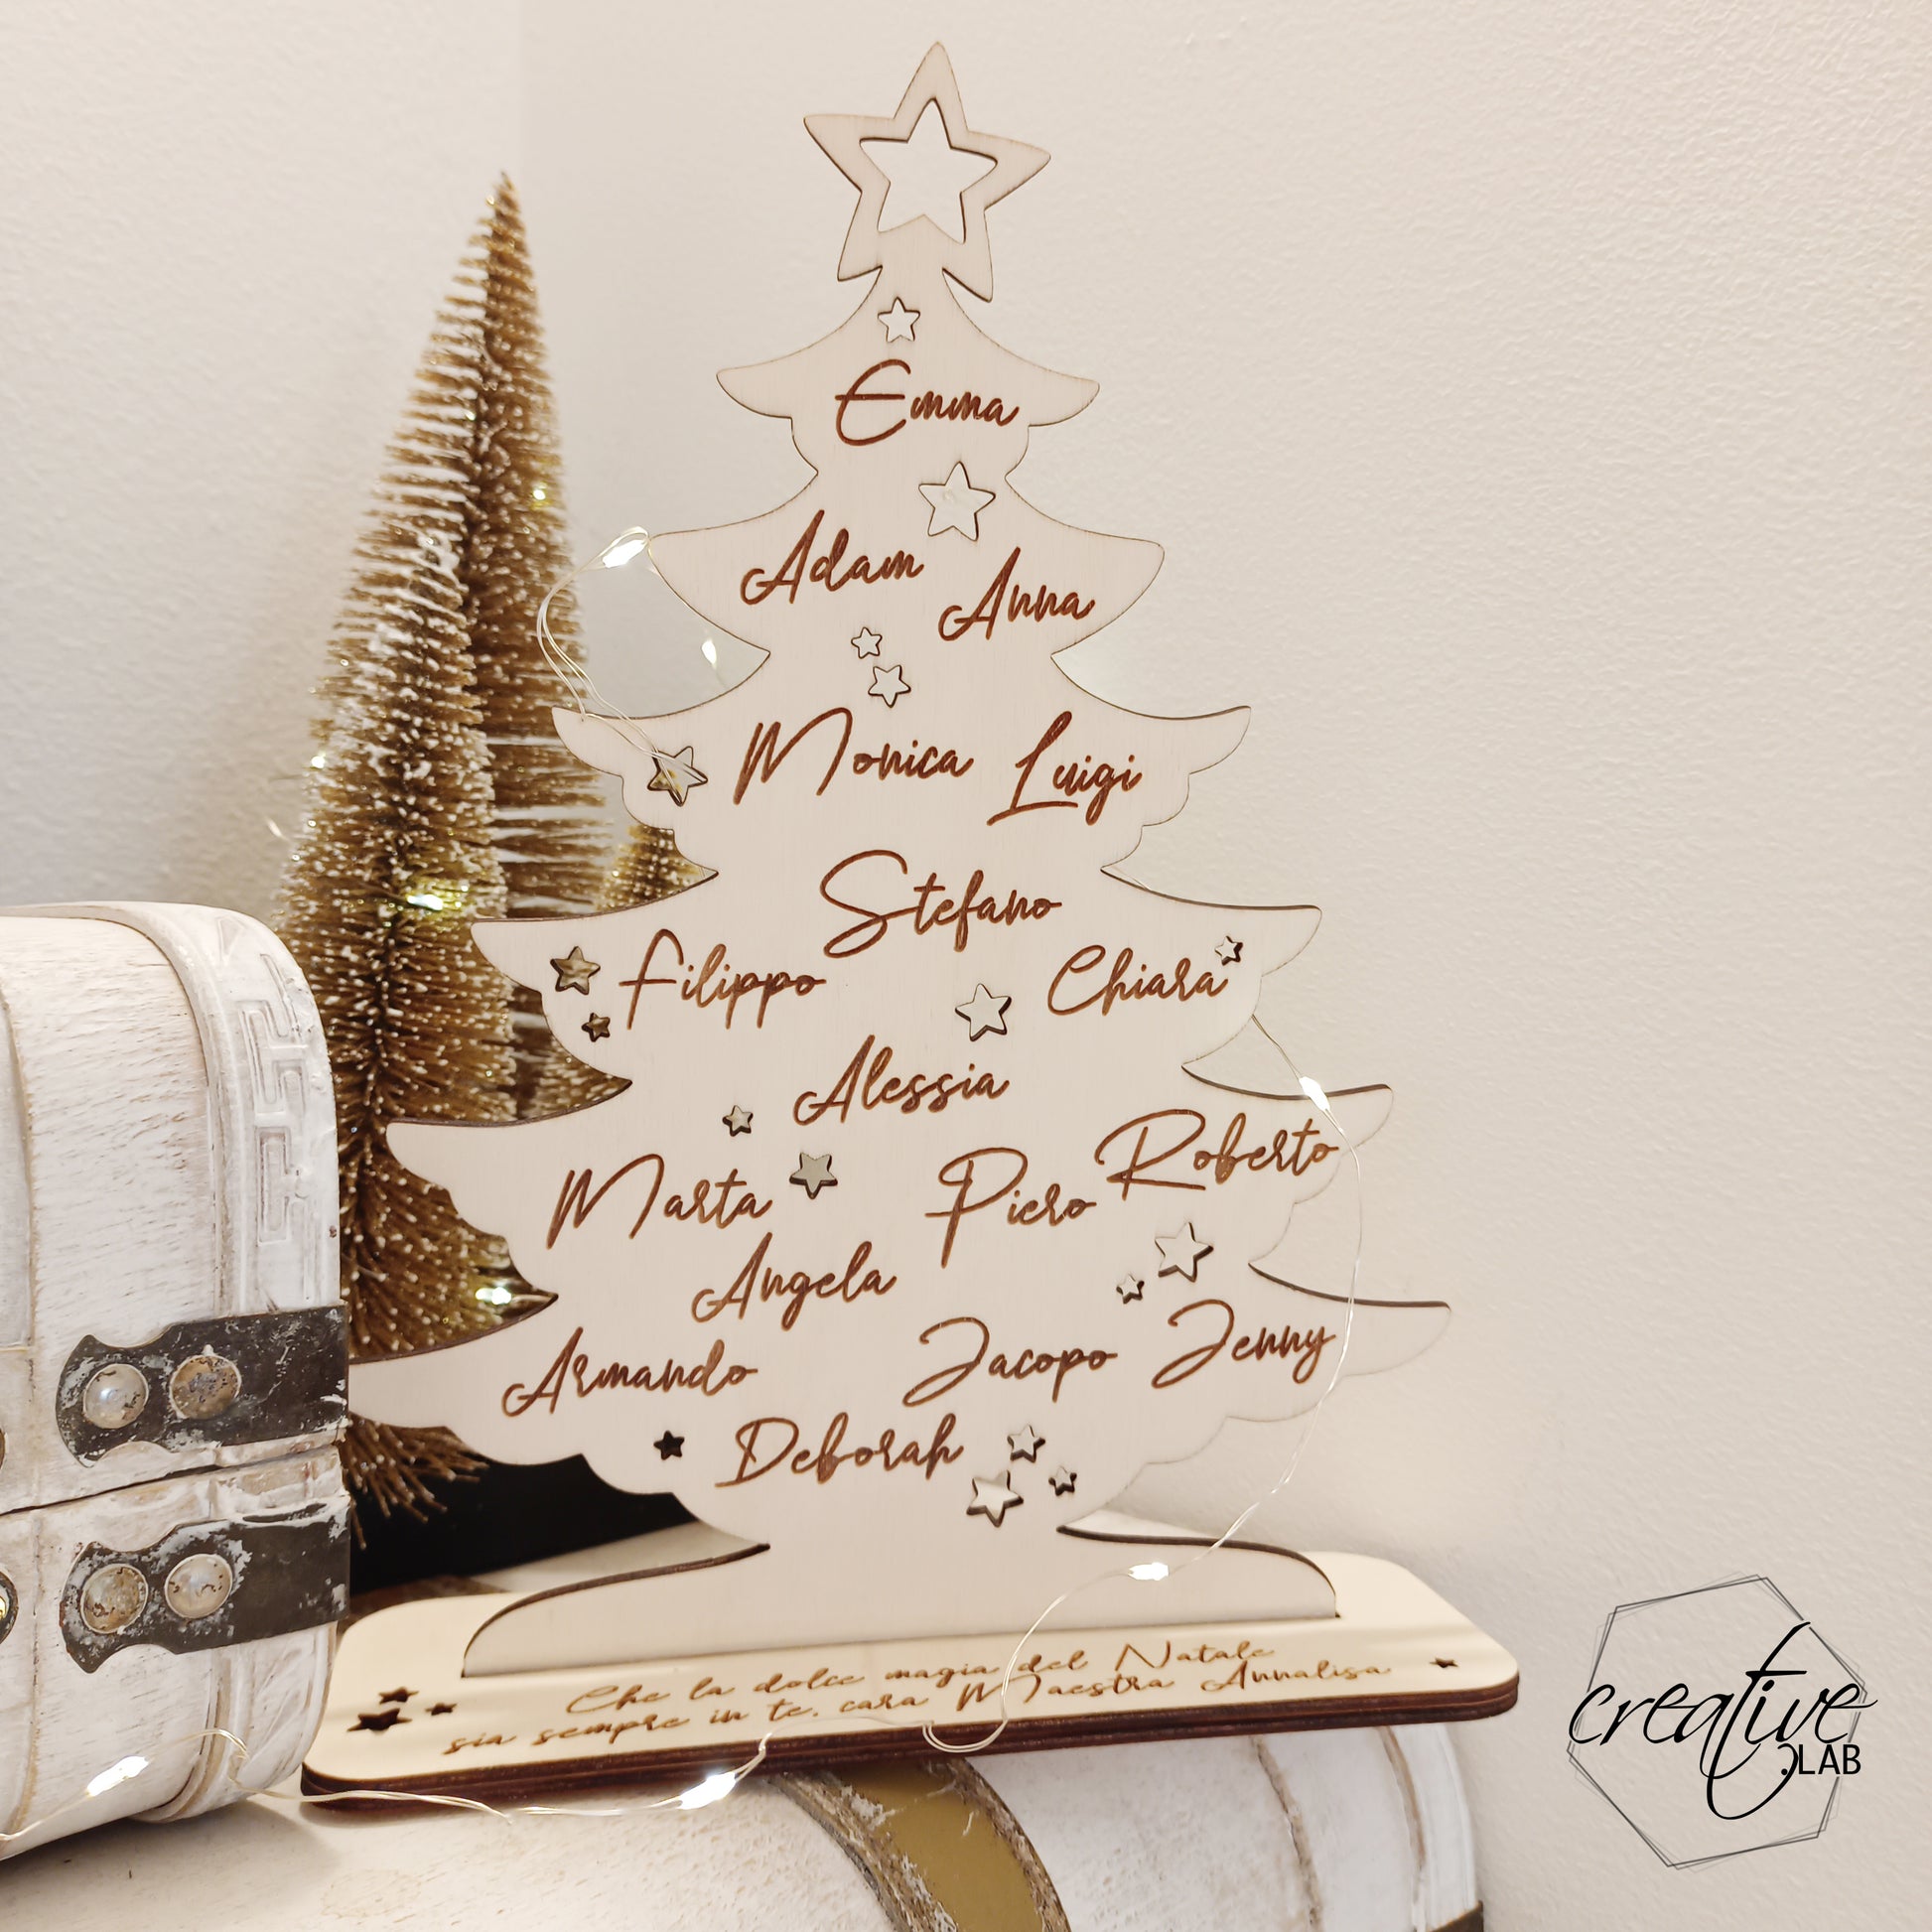 Emma
Adam
Anna
Monica Luigi
Stefano
Filippo
Chiara
Alessia
Marta
Piero
Roberto
Angela
Armando
Jacopo
Jenny
Deborah
Che la dolce magia del Natale
sia sempre in te, cara Maestra Annalisa
creative
.LAB